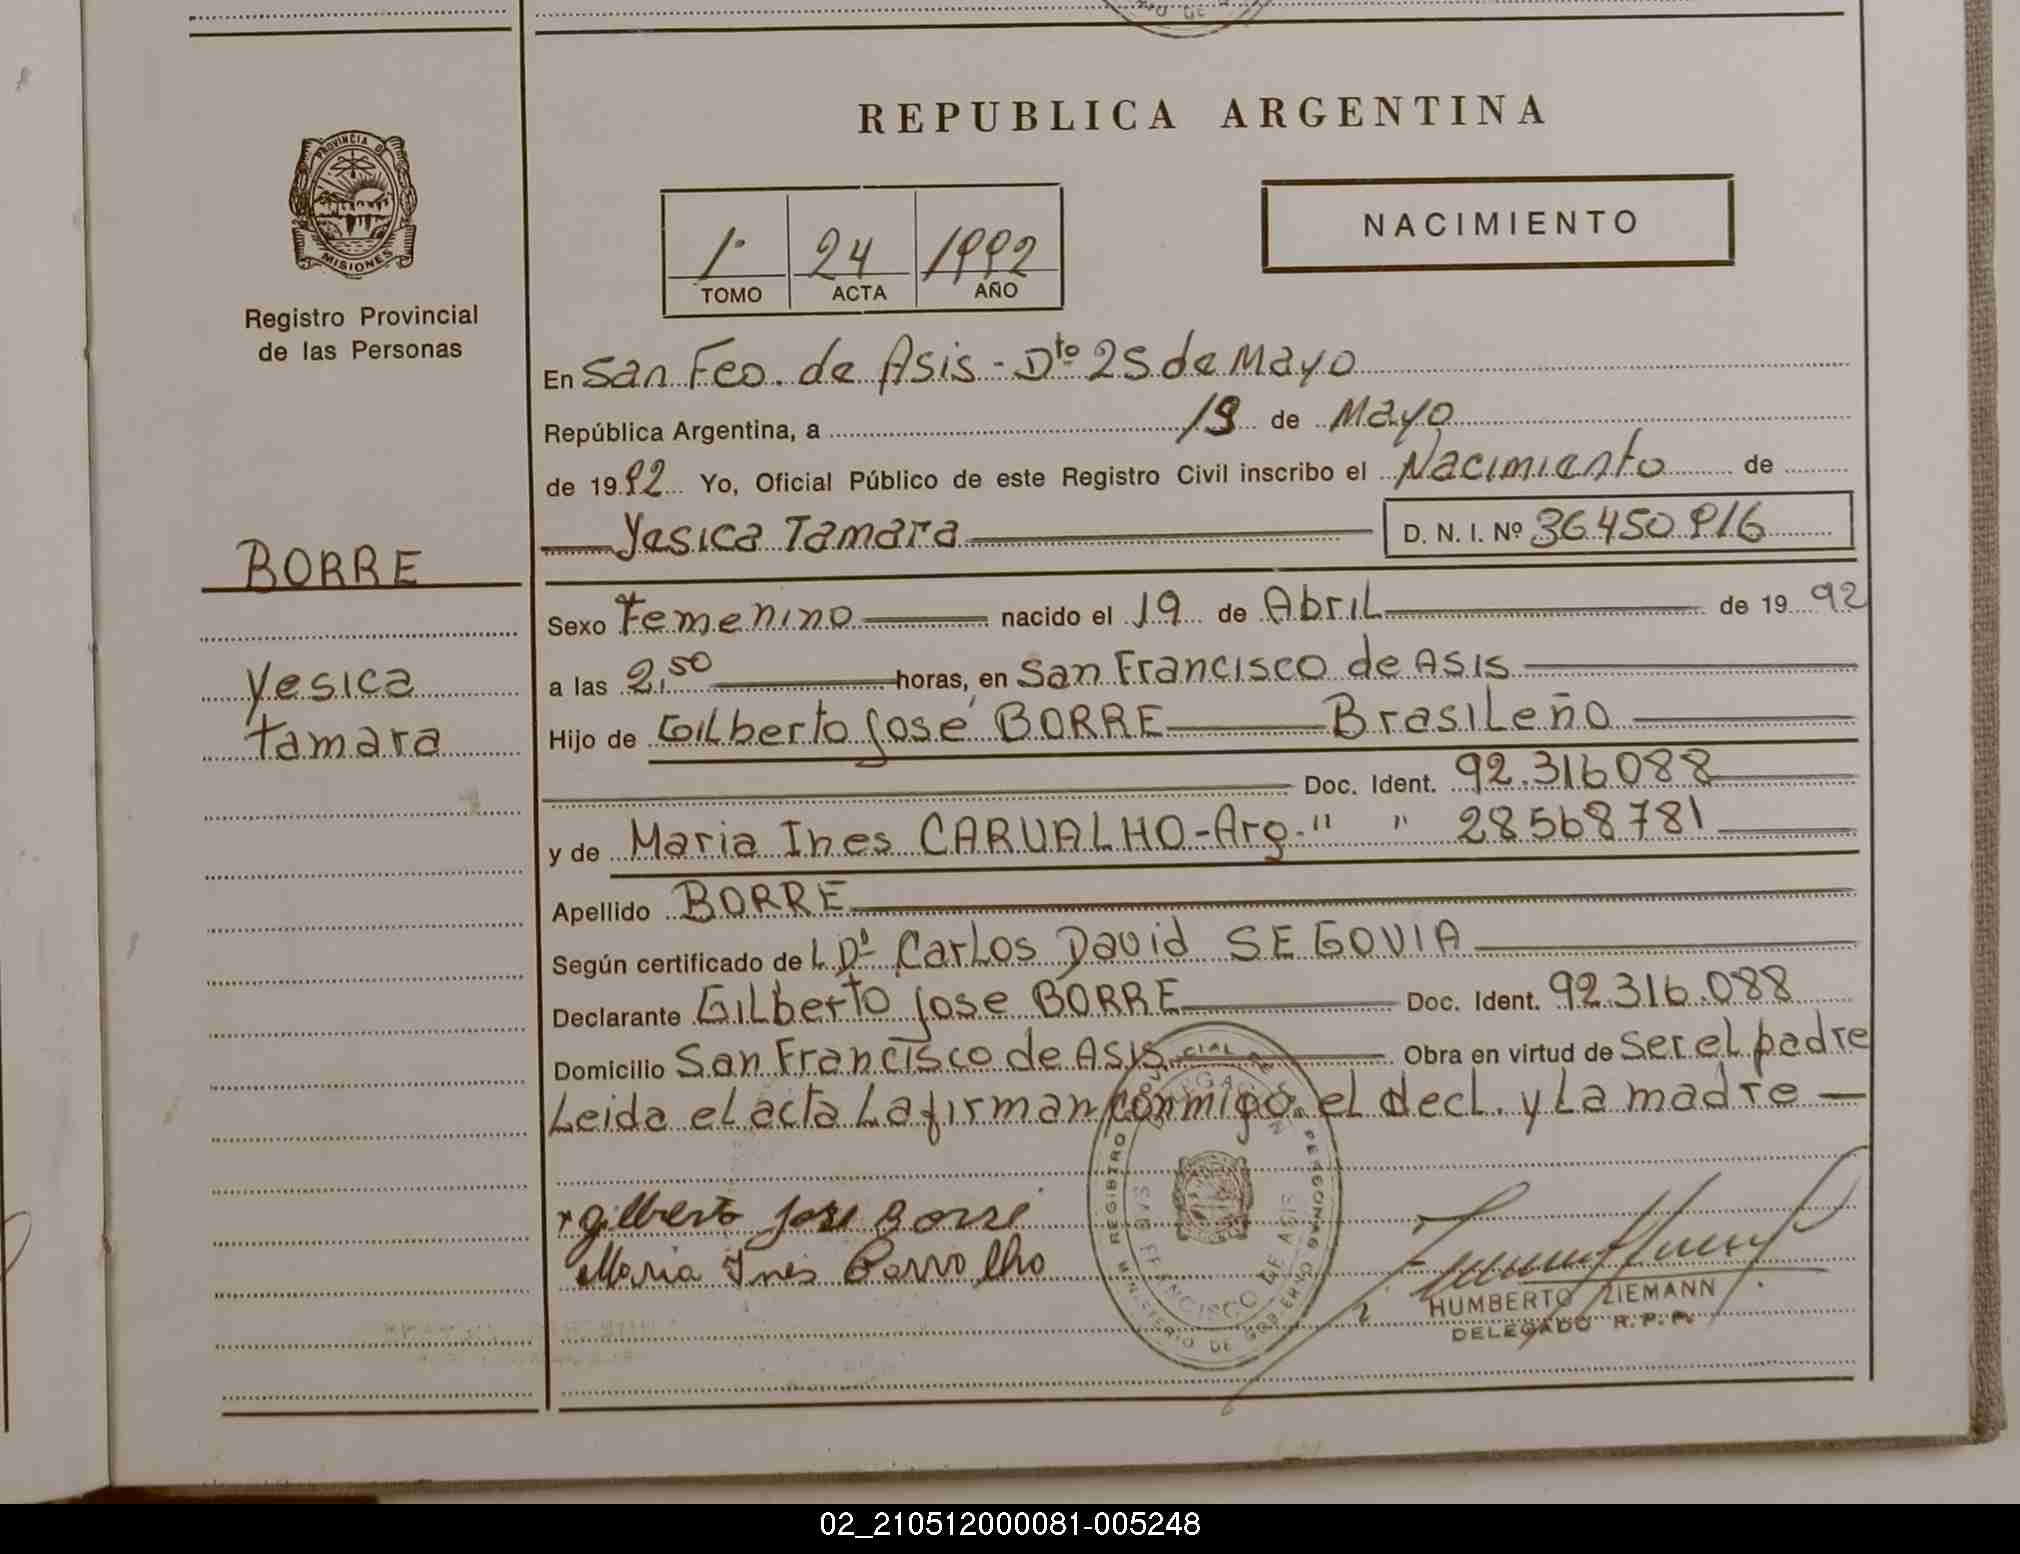 REPUBLICA ARGENTINA
PROVINCIA DE
MISIONES
Registro Provincial
de las Personas
1º 24 1992
TOMO ACTA AÑO
NACIMIENTO
En San Fco. de Asis - Dto 25 de Mayo
República Argentina, a 19 de Mayo
de 1992 Yo, Oficial Público de este Registro Civil inscribo el Nacimiento de
Yesica Tamara D. N. I. Nº 36.450.916
BORRE
Sexo Femenino nacido el 19 de Abril de 1992
Yesica
a las 2,50 horas, en San Francisco de Asis
Tamara
Hijo de Gilberto José BORRE Brasileño
Doc. Ident. 92.316088
y de Maria Ines CARVALHO-Arg. " " 28568781
Apellido BORRE
Según certificado de L Dr Carlos David SEGOVIA
Declarante Gilberto Jose BORRE Doc. Ident. 92.316.088
Domicilio San Francisco de Asis Obra en virtud de Ser el padre
Leida el acta La firman conmigo. el decl. y La madre
gilberto jose Borre
Maria Ines Carvalho
REGISTRO PERSONAS
MINISTERIO DE GOBIERNO
DELEGACION
FRANCISCO DE ASIS
HUMBERTO ZIEMANN
DELEGADO R.P.P.
02_210512000081-005248